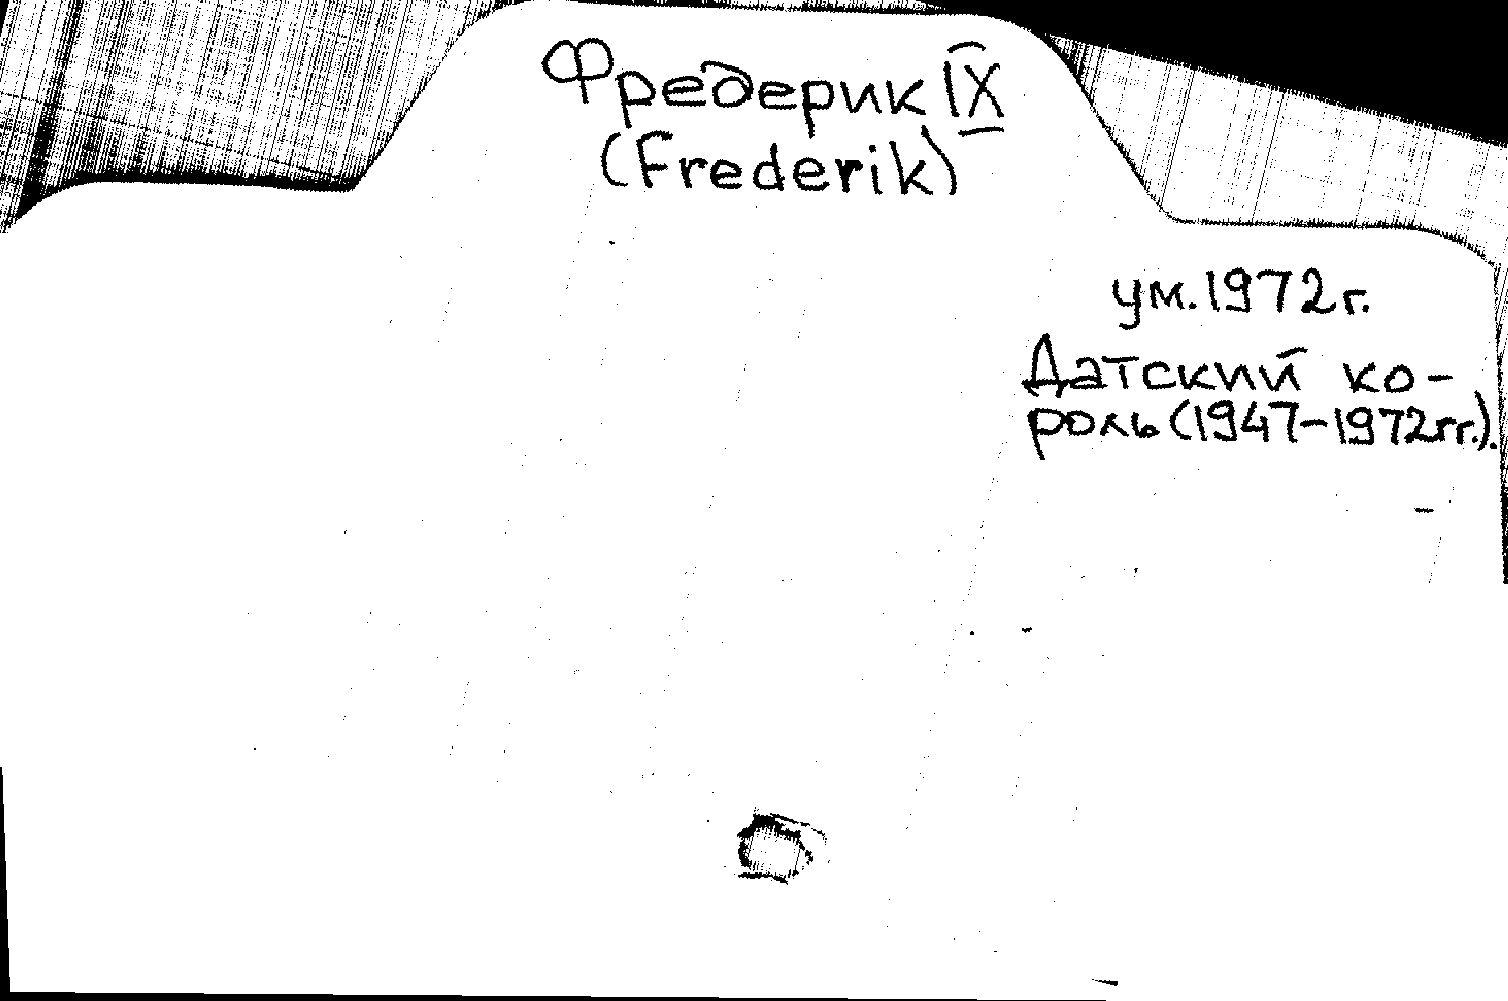 Фредерик IX
(Frederik)
ум. 1972 г.
Датский ко-
роль (1947-1972 гг.).